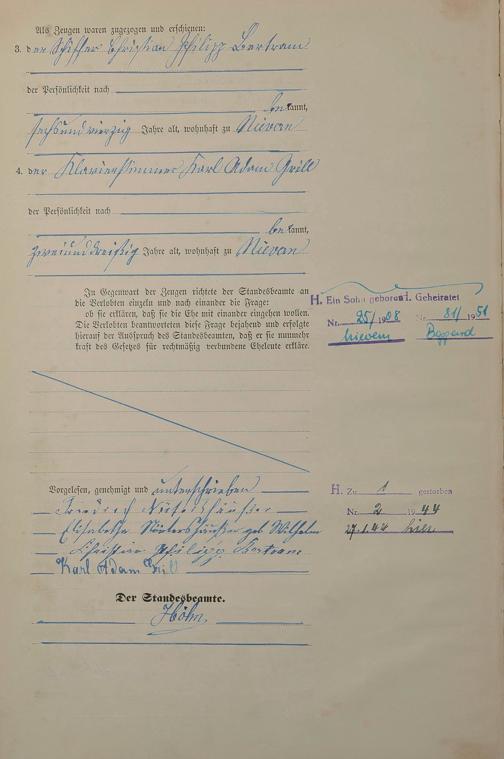 Als Zeugen waren zugezogen und erschienen:
3. der Schiffer Christian Philipp Bertram
der Persönlichkeit nach
bekannt,
sechsundvierzig Jahre alt, wohnhaft zu Nievern
4. der Klavierstimmer Karl Adam Grill
der Persönlichkeit nach
bekannt,
zweiunddreißig Jahre alt, wohnhaft zu Nievern
In Gegenwart der Zeugen richtete der Standesbeamte an
die Verlobten einzeln und nach einander die Frage:
ob sie erklären, daß sie die Ehe mit einander eingehen wollen.
Die Verlobten beantworteten diese Frage bejahend und erfolgte
hierauf der Ausspruch des Standesbeamten, daß er sie nunmehr
kraft des Gesetzes für rechtmäßig verbundene Eheleute erkläre.
H. Ein Sohn geboren
Nr. 25/1908
Nievern
1. Geheiratet
Nr. 81/1951
Boppard
Vorgelesen, genehmigt und unterschrieben
Friedrich
Elisabetha geb. Wilhelm
Christian Philipp Bertram
Karl Adam Grill
H. Zu 1 gestorben
Nr. 2 1944
27.1.44
Der Standesbeamte.
Höhn